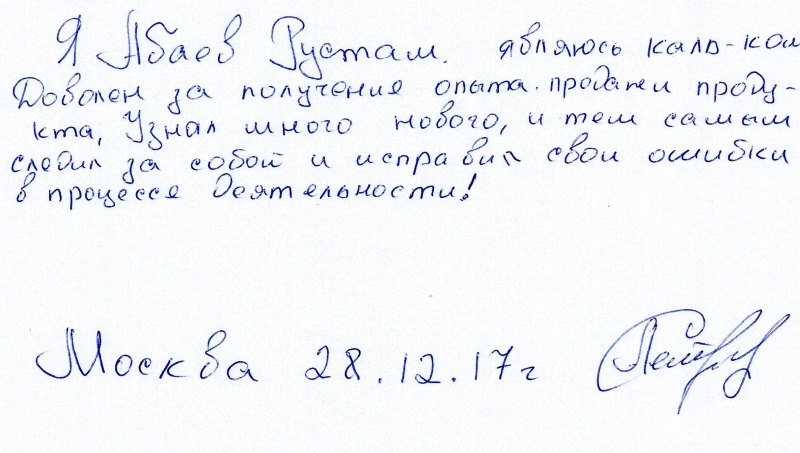 Я Абаев Рустам. являюсь каль-ком
Доволен за получения опыта продажи проду-
кта, Узнал много нового, и тем самым
следил за собой и исправил свои ошибки
в процессе деятельности!
Москва 28.12.17г